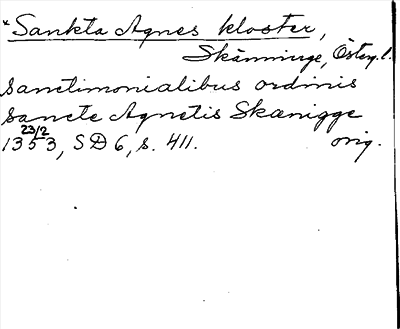 * Sankta Agnes kloster,
Skänninge, Österg. l.
sanctimonialibus ordinis
sancte Agnetis Skænigge
23/2
1353, SD 6, s. 411. orig.